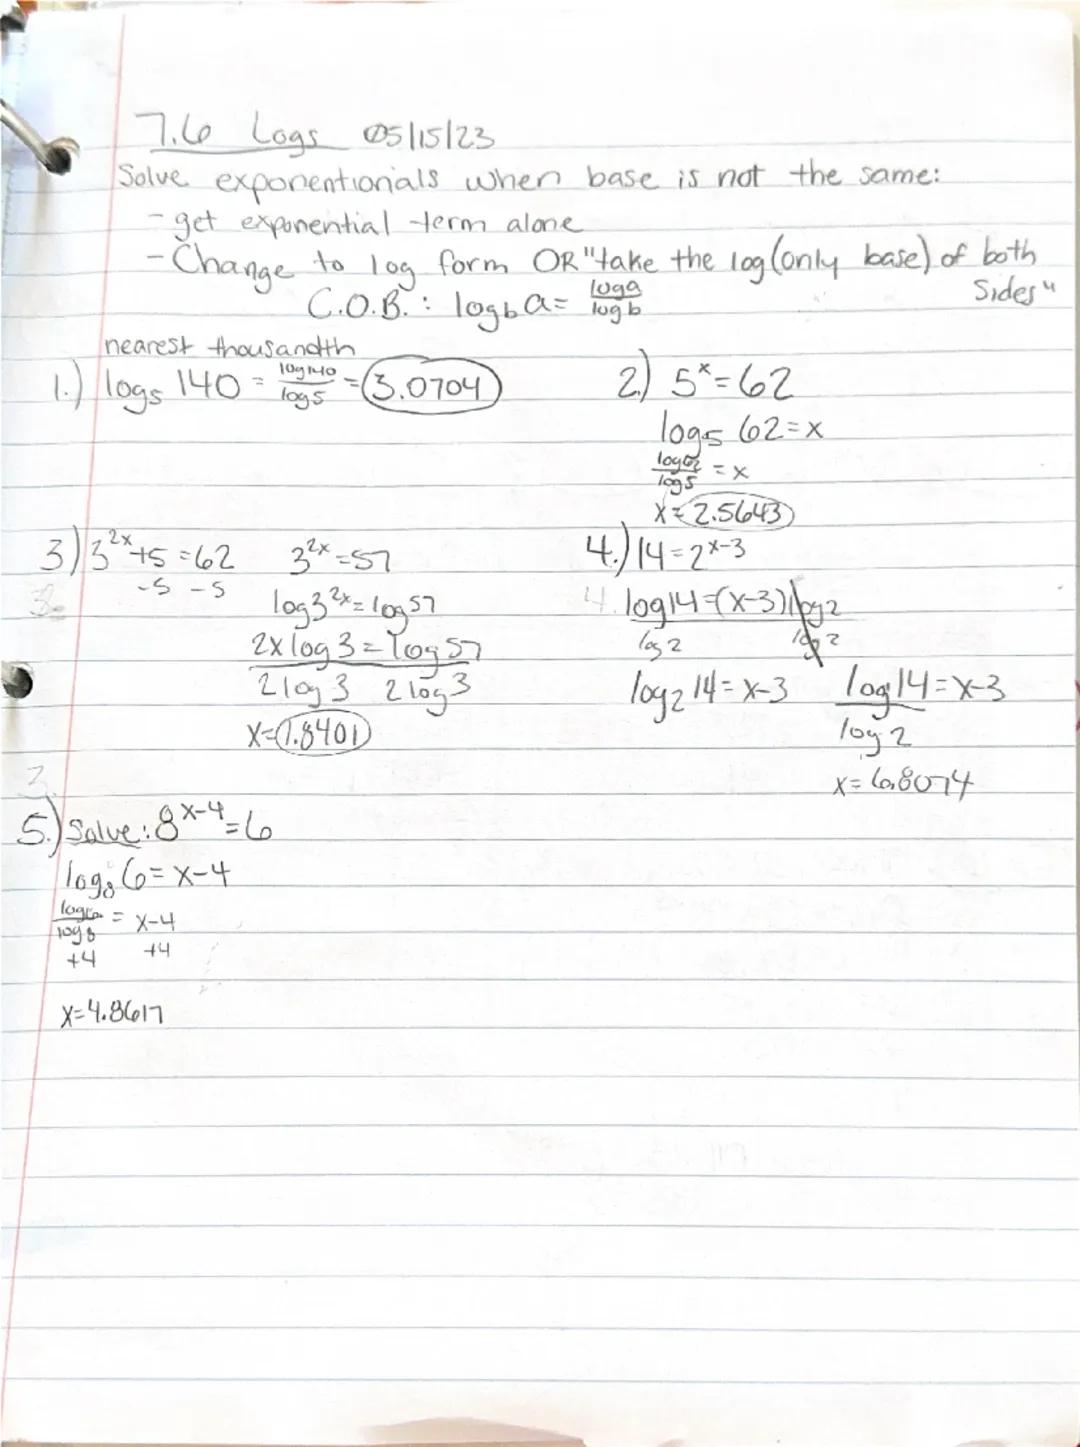 7.6 Logs 05/15/23
Solve exponentionials when base is not the same:
- get exponential term alone
- Change to log form OR "take the log (only base) of both sides"
C.O.B.: log_b a = log a / log b
nearest thousandth
1.) log₅ 140 = log 140 / log 5 = 3.0704
2.) 5^x = 62
log₅ 62 = x
log 62 / log 5 = x
x = 2.5643
3.) 3^(2x) + 5 = 62
-5 -5
3^(2x) = 57
log 3^(2x) = log 57
2x log 3 = log 57
2 log 3 2 log 3
x = 1.8401
4.) 14 = 2^(x-3)
4. log 14 = (x-3) log 2
log 2 log 2
log₂ 14 = x-3
log 14 / log 2 = x-3
x = 6.8074
5.) Solve: 8^(x-4) = 6
log₈ 6 = x-4
log 6 / log 8 = x-4
+4 +4
x = 4.8617